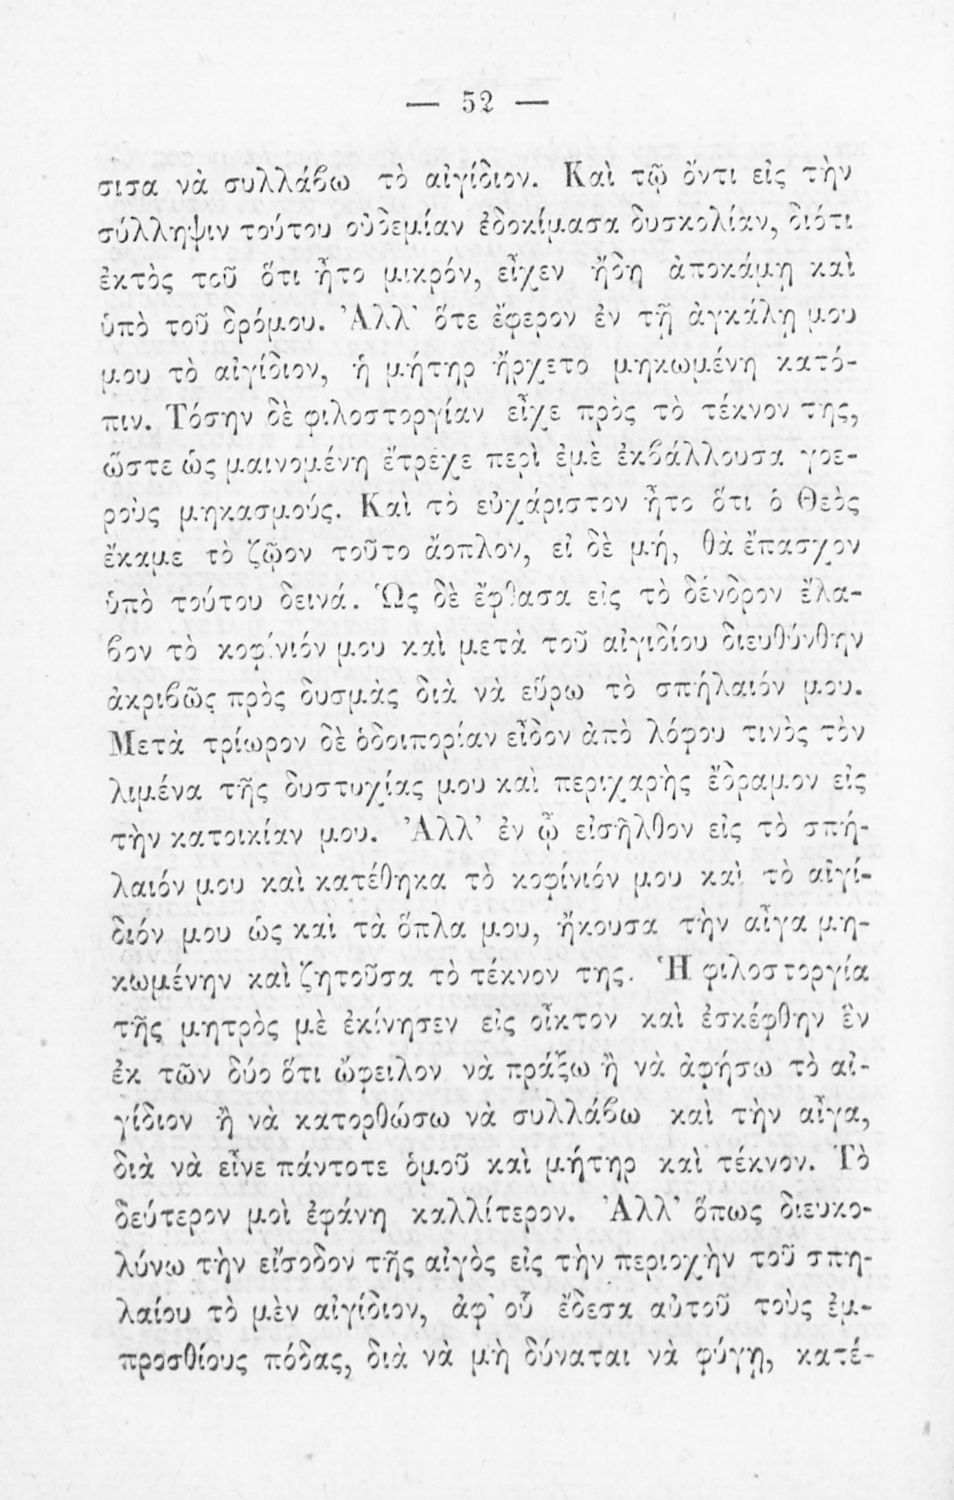 — 52 —
σισα νὰ συλλάβω τὸ αἰγίδιον. Καὶ τῷ ὄντι εἰς τὴν
σύλληψιν τούτου οὐδεμίαν ἐδοκίμασα δυσκολίαν, διότι
ἐκτὸς τοῦ ὅτι ἦτο μικρόν, εἶχεν ἤδη ἀποκάμῃ καὶ
ὑπὸ τοῦ δρόμου. Ἀλλ' ὅτε ἔφερον ἐν τῇ ἀγκάλῃ μου
μου τὸ αἰγίδιον, ἡ μήτηρ ἤρχετο μηκωμένη κατό-
πιν. Τόσην δὲ φιλοστοργίαν εἶχε πρὸς τὸ τέκνον της,
ὥστε ὡς μαινομένη ἔτρεχε περὶ ἐμὲ ἐκβάλλουσα γοε-
ροὺς μηκασμούς. Καὶ τὸ εὐχάριστον ἦτο ὅτι ὁ Θεὸς
ἔκαμε τὸ ζῷον τοῦτο ἄοπλον, εἰ δὲ μή, θὰ ἔπασχον
ὑπὸ τούτου δεινά. Ὡς δὲ ἔφθασα εἰς τὸ δένδρον ἔλα-
βον τὸ κοφίνιόν μου καὶ μετὰ τοῦ αἰγιδίου διευθύνθην
ἀκριβῶς πρὸς δυσμὰς διὰ νὰ εὕρω τὸ σπήλαιόν μου.
Μετὰ τρίωρον δὲ ὁδοιπορίαν εἶδον ἀπὸ λόφου τινὸς τὸν
λιμένα τῆς δυστυχίας μου καὶ περιχαρὴς ἔδραμον εἰς
τὴν κατοικίαν μου. Ἀλλ' ἐν ᾧ εἰσῆλθον εἰς τὸ σπή-
λαιόν μου καὶ κατέθηκα τὸ κοφίνιόν μου καὶ τὸ αἰγί-
διόν μου ὡς καὶ τὰ ὅπλα μου, ἤκουσα τὴν αἶγα μη-
κωμένην καὶ ζητοῦσα τὸ τέκνον της. Ἡ φιλοστοργία
τῆς μητρὸς μὲ ἐκίνησεν εἰς οἶκτον καὶ ἐσκέφθην ἓν
ἐκ τῶν δύο ὅτι ὤφειλον νὰ πράξω ἢ νὰ ἀφήσω τὸ αἰ-
γίδιον ἢ νὰ κατορθώσω νὰ συλλάβω καὶ τὴν αἶγα,
διὰ νὰ εἶνε πάντοτε ὁμοῦ καὶ μήτηρ καὶ τέκνον. Τὸ
δεύτερον μοὶ ἐφάνη καλλίτερον. Ἀλλ' ὅπως διευκο-
λύνω τὴν εἴσοδον τῆς αἰγὸς εἰς τὴν περιοχὴν τοῦ σπη-
λαίου τὸ μὲν αἰγίδιον, ἀφ' οὗ ἔδεσα αὐτοῦ τοὺς ἐμ-
προσθίους πόδας, διὰ νὰ μὴ δύναται νὰ φύγῃ, κατέ-